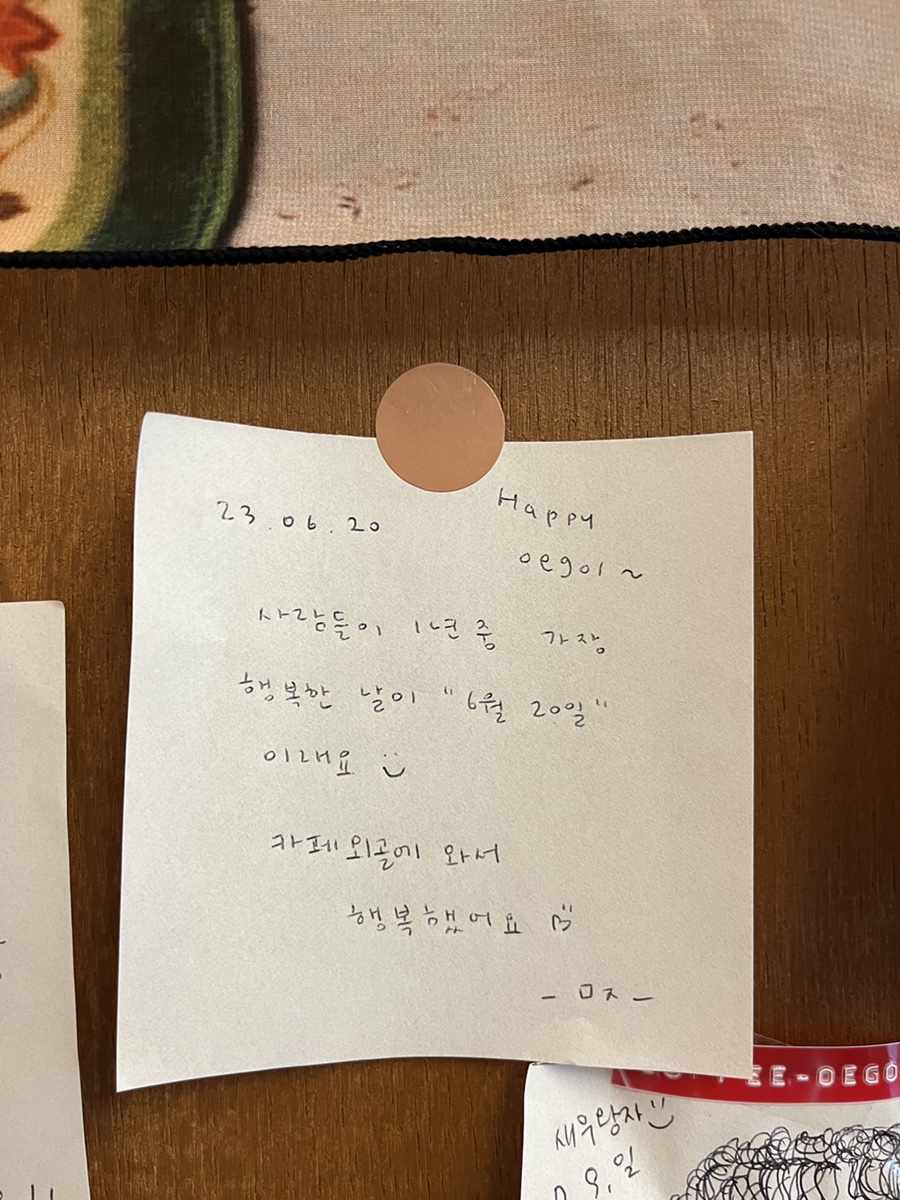 23.06.20
Happy
oegol ~
사람들이 1년 중 가장
행복한 날이 "6월 20일"
이래요
카페외골에 와서
행복했어요
- ㅁㅈ -
EE-OEGO
새우왕자